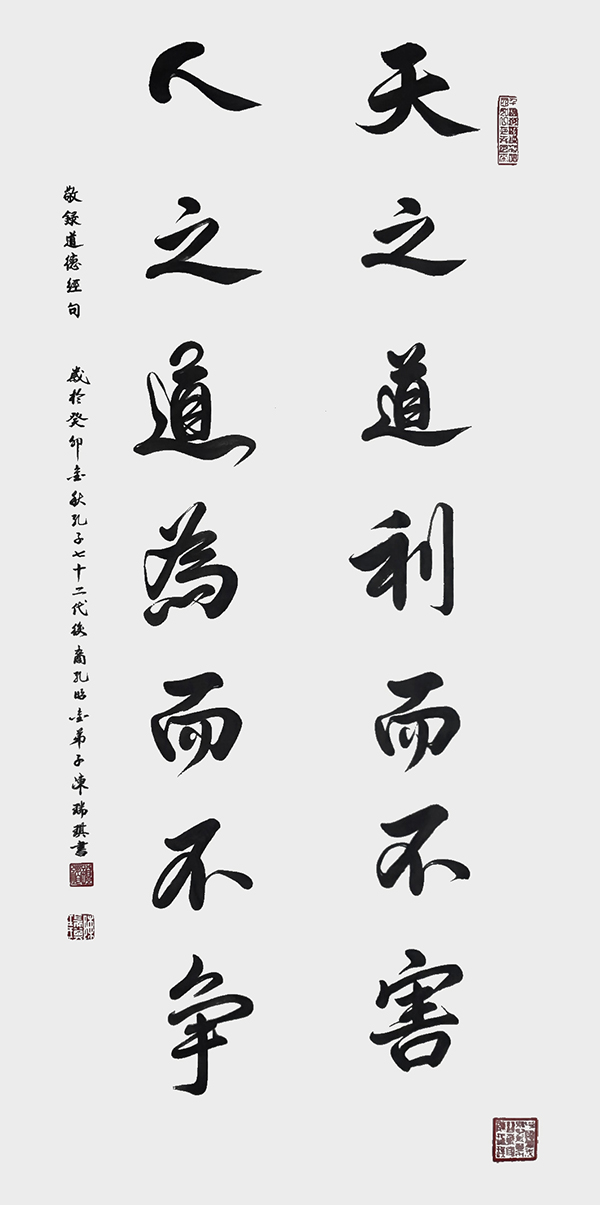 天之道利而不害
人之道為而不争
敬録道德經句 歲於癸卯金秋孔子七十二代後裔孔昭金弟子陳瑞琪書